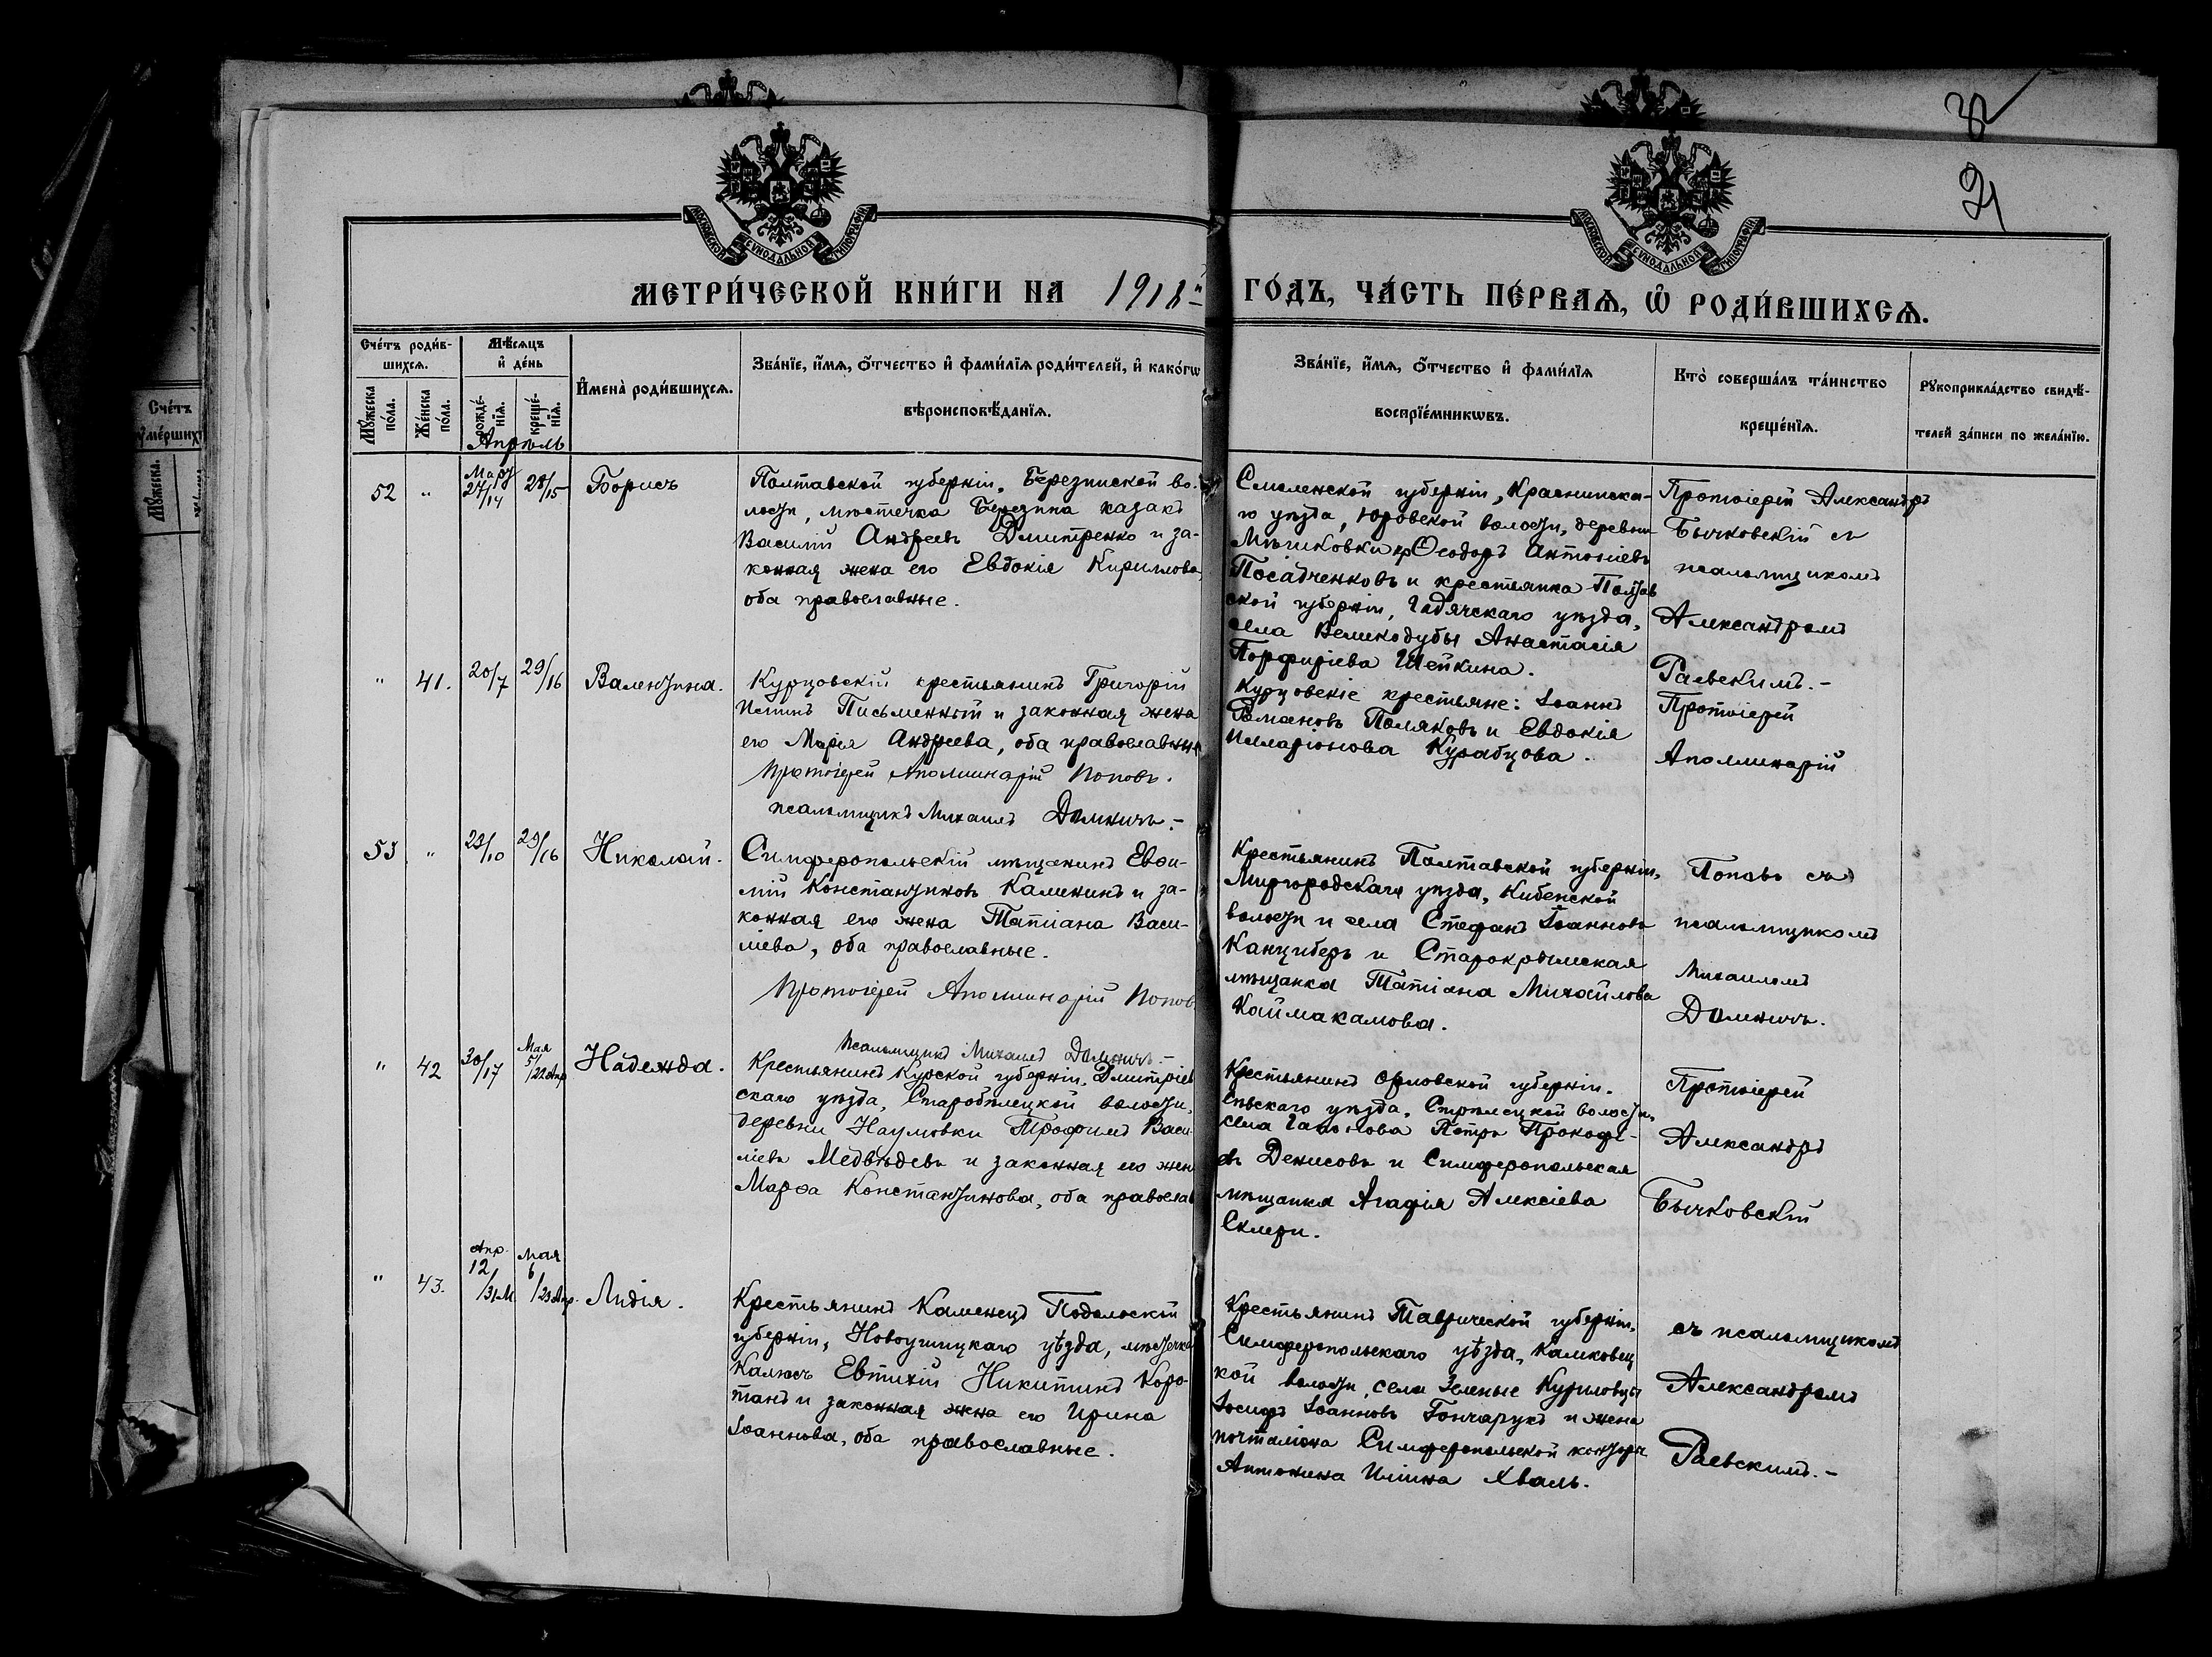 32
21
МЕТРИ́ЧЕСКОЙ КНИ́ГИ НА 1918й ГО́ДЪ, ЧА́СТЬ ПЕ́РВАѦ, Ѡ҆ РОДИ́ВШИХСѦ.
Сче́тъ роди́в-
шихсѧ.
Мꙋ́жеска по́ла.
Же́нска по́ла.
Мѣ́сѧцъ
и҆ де́нь
рожде́-
нїѧ.
креще́-
нїѧ.
И҆мена̀ роди́вшихсѧ.
Зва́нїе, и҆́мѧ, ѻ҆́тчество и҆ фами́лїѧ роди́телей, и҆ како́гѡ
вѣроисповѣ́данїѧ.
Зва́нїе, и҆́мѧ, ѻ҆́тчество и҆ фами́лїѧ
воспрїе́мникѡвъ.
Кто̀ соверша́лъ та́инство
креще́нїѧ.
Рꙋкоприкла́дство свидѣ́-
телей за́писи по жела́нїю.
Апрѣль
52 " Март 27/14 28/15 Борисъ
Полтавской губерніи, Березинской во-
лости, мѣстечка Березина казакъ
Василій Андреевъ Дмитренко и за-
конная жена его Евдокія Кириллова,
оба православные.
Смоленской губерніи, Краснинска-
го уѣзда, Юровской волости, деревни
Ѳеодоръ Антоніевъ
Посадченковъ и крестьянка Полтав
ской губерніи, Гадячскаго уѣзда,
села Великодубы Анастасія
Порфиріева Шейкина.
Протоіерей Александръ
Бычковскій съ
псаломщикомъ
Александромъ
Раевскимъ.-
" 41. 20/7 29/16 Валентина.
Курцовскій крестьянинъ Григорій
Письменный и законная жена
его Марія Андреева, оба православн
Протоіерей Аполлинарій Поповъ.
псаломщикъ Михаилъ Домничъ.-
Курцовскіе крестьяне: Іоаннъ
Романовъ Поляковъ и Евдокія
Илларіонова Курабцова.
Протоіерей
Аполлинарій
53 " 23/10 29/16 Николай.
Симферопольскій мѣщанинъ Евѳи-
мій Константиновъ Калининъ и за-
конная его жена Татіана Васи-
ліева, оба православные.
Протоіерей Аполлинарій Попов
Псаломщикъ Михаилъ Домничъ.-
Крестьянинъ Полтавской губерніи,
Миргородскаго уѣзда, Кибенской
волости и села Стефанъ Іоанновъ
Канциберъ и Старокрымская
мѣщанка Татіана Михайлова
Каймакамова.
Поповъ съ
псаломщикомъ
Михаиломъ
Домничъ.
" 42 30/17 Мая 5/22 Апр Надежда.
Крестьянинъ Курской губерніи, Дмитріев
скаго уѣзда, Старобѣлецкой волости,
деревни Наумовки Трофимъ Васи
ліевъ Медвѣдевъ и законная его жен
Марѳа Константинова, оба православ
Крестьянинъ Орловской губерніи,
уѣзда, Стрѣлецкой волости,
села Гапонова Петръ Прокофі-
евъ Денисовъ и Симферопольская
мѣщанка Агафія Алексіева
Склери.
Протоіерей
Александръ
Бычковскій
" 43. Апр. 12/31 М. Мая 6/23 Апр. Лидія.
Крестьянинъ Каменецъ Подольской
губерніи, Новоушицкаго уѣзда, мѣстечка
Калюсъ Евтихій Никитинъ Коро-
танъ и законная жена его Ирина
Іоаннова, оба православные.
Крестьянинъ Таврической губерніи,
Симферопольскаго уѣзда,
кой волости, села Зеленые Куриловцы
Іосифъ Іоанновъ Гончарукъ и жена
почталіона Симферопольской конторы
Антонина Иліина Хваль.
съ псаломщикомъ
Александромъ
Раевскимъ.-
Сче́тъ
ꙋме́ршихъ
Мꙋ́жеска.